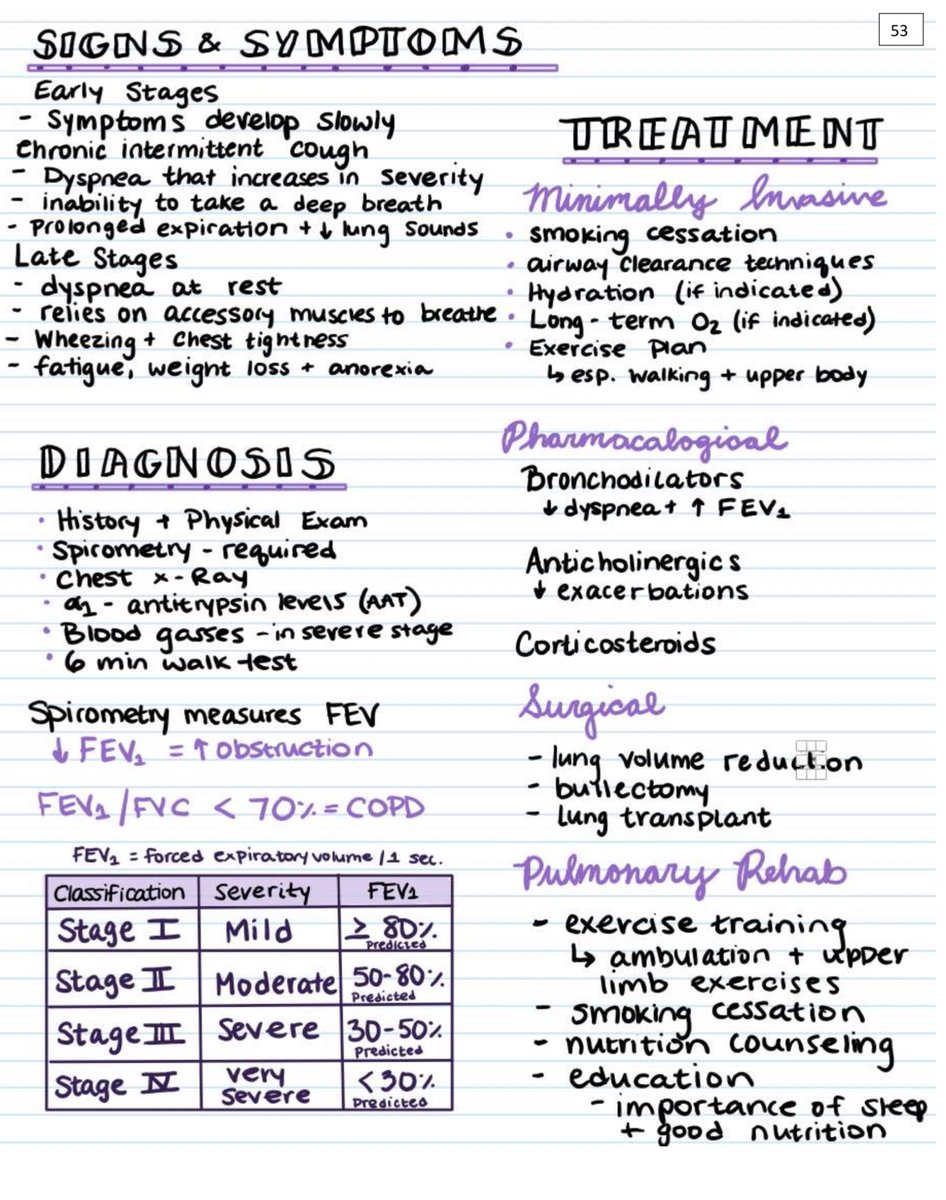 53
SIGNS & SYMPTOMS
Early Stages
- Symptoms develop slowly
Chronic intermittent cough
- Dyspnea that increases in severity
- inability to take a deep breath
- Prolonged expiration + ↓ lung sounds
Late Stages
- dyspnea at rest
- relies on accessory muscles to breathe
- Wheezing + Chest tightness
- fatigue, weight loss + anorexia
DIAGNOSIS
• History + Physical Exam
• Spirometry - required
• Chest x-Ray
• α1 - antitrypsin levels (AAT)
• Blood gasses - in severe stage
• 6 min walk test
Spirometry measures FEV
↓ FEV1 = ↑ obstruction
FEV1/FVC < 70% = COPD
FEV1 = forced expiratory volume /1 sec.
Classification Severity FEV1
Stage I Mild ≥ 80%
Predicted
Stage II Moderate 50-80%
Predicted
Stage III Severe 30-50%
Predicted
Stage IV very severe <30%
Predicted
TREATMENT
Minimally Invasive
• smoking cessation
• airway clearance techniques
• Hydration (if indicated)
• Long-term O2 (if indicated)
• Exercise Plan
↳ esp. walking + upper body
Pharmacalogical
Bronchodilators
↓ dyspnea + ↑ FEV1
Anticholinergics
↓ exacerbations
Corticosteroids
Surgical
- lung volume reduction
- bullectomy
- lung transplant
Pulmonary Rehab
- exercise training
↳ ambulation + upper
limb exercises
- smoking cessation
- nutrition counseling
- education
- importance of sleep
+ good nutrition